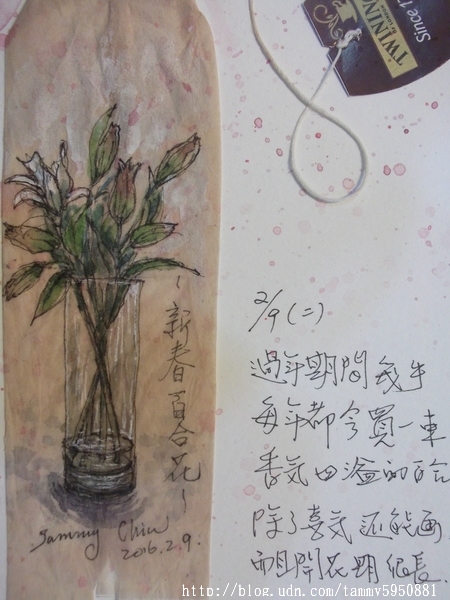 TWINING
Since 1
~新春百合花~
Sammy Chiu
2016.2.9.
2/9(二)
過年期間幾乎
每年都會買一束
香氣四溢的百合
除了喜氣 還能畫
而且開花期很長.
http://blog.udn.com/tammv5950881